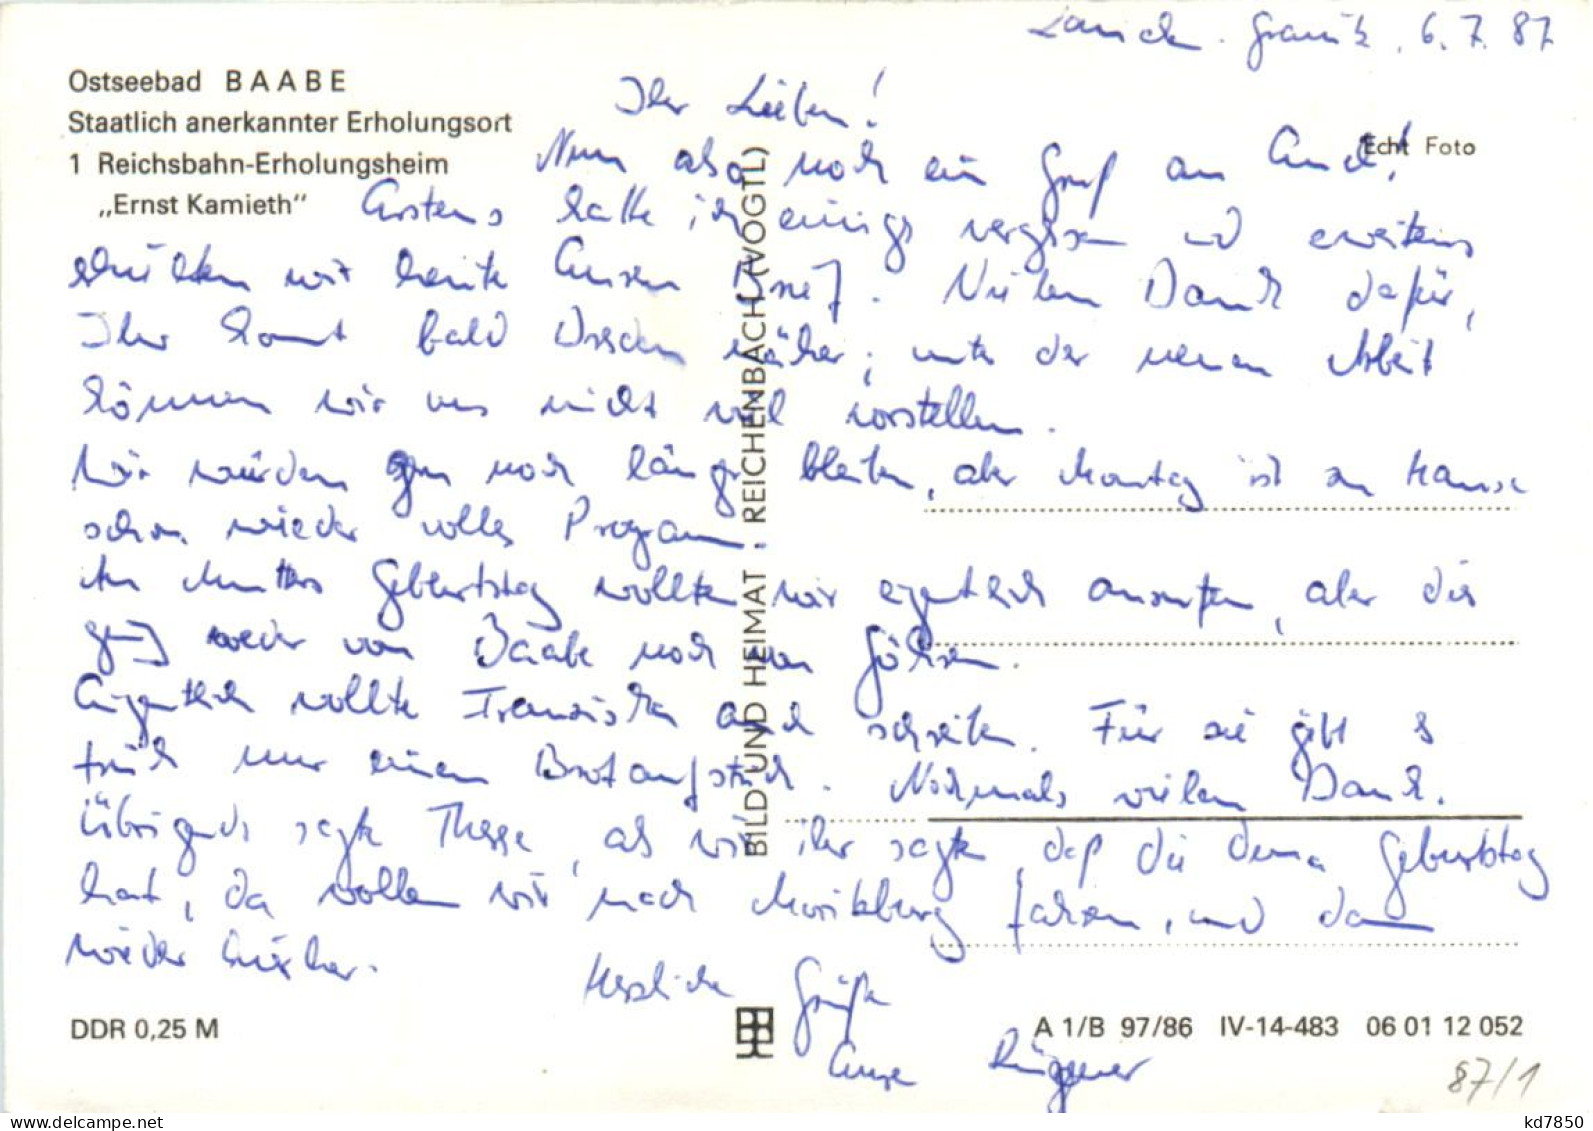 Lancken-Granitz, 6.7.87
Ostseebad BAABE
Staatlich anerkannter Erholungsort
1 Reichsbahn-Erholungsheim
„Ernst Kamieth“
Echt Foto
Ihr Lieben!
Nun also noch ein Gruß an Euch!
Erstens hatte ich einiges vergessen und zweitens
erhielten wir heute Euren Brief. Vielen Dank dafür,
Ihr kommt bald Dresden näher; unter der neuen Arbeit
können wir uns nicht viel vorstellen.
Wir würden gern noch länger bleiben, aber Montag ist zu Hause
schon wieder volles Programm.
An Mutters Geburtstag wollten wir eigentlich anrufen, aber das
ging weder von Baabe noch von Göhren.
Eigentlich wollte Franziska auch schreiben. Für sie gibt es
früh nur einen Brotaufstrich. Nochmals vielen Dank.
Übrigens sagte These, als wir ihr sagten, daß die Oma Geburtstag
hat, da wollen wir nach Moritzburg fahren, und dann
wieder hierher.
Herzliche Grüße
Eure Rügener
BILD UND HEIMAT . REICHENBACH (VOGTL)
DDR 0,25 M
A 1/B 97/86 IV-14-483 06 01 12 052
87/1
kd7850